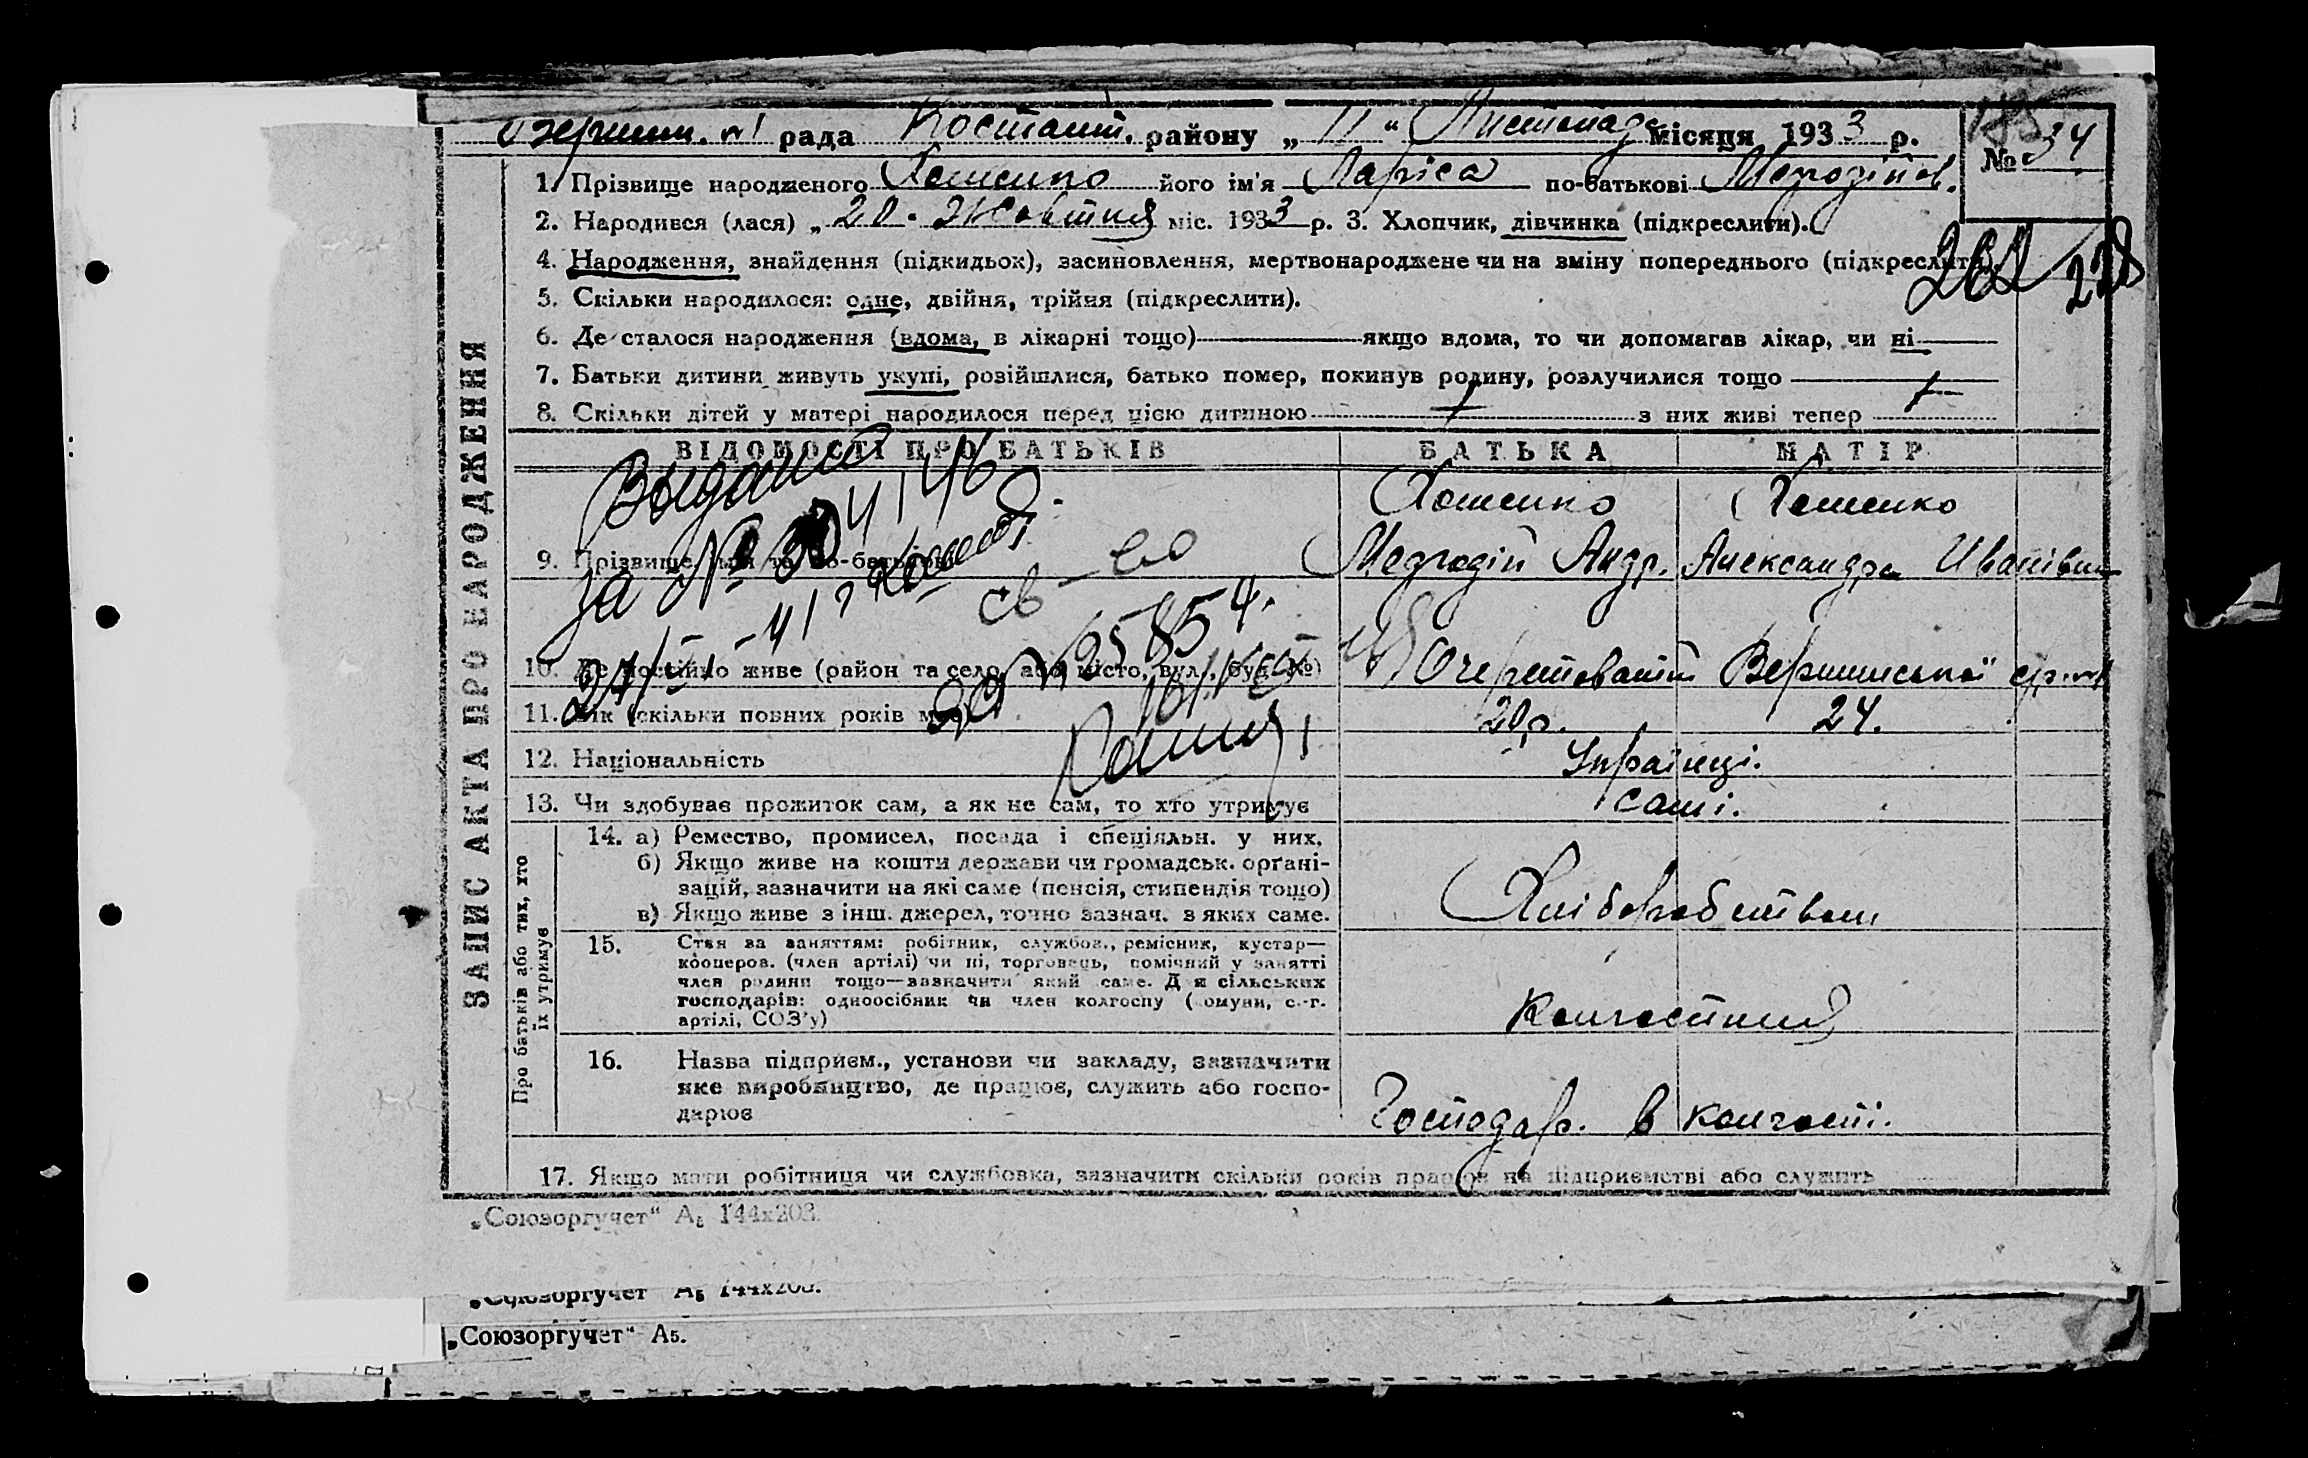 рада Костант. району „ 11 “ Листопада місяця 1933 р.
№ 34
1. Прізвище народженого Хоменко його ім'я Лариса по-батькові Мефодіїв.
2. Народився (лася) „ 20 . Жовтня міс. 1933 р. 3. Хлопчик, дівчинка (підкреслити).
4. Народження, знайдення (підкидьок), засиновлення, мертвонароджене чи на зміну попереднього (підкреслити)
262 228
5. Скільки народилося: одне, двійня, трійня (підкреслити).
6. Де сталося народження (вдома, в лікарні тощо) якщо вдома, то чи допомагав лікар, чи ні
7. Батьки дитини живуть укупі, розійшлися, батько помер, покинув родину, розлучилися тощо
8. Скільки дітей у матері народилося перед цією дитиною 1 з них живі тепер 1
ЗАПИС АКТА ПРО НАРОДЖЕННЯ
ВІДОМОСТІ ПРО БАТЬКІВ БАТЬКА МАТІР
Выдано
Хоменко Хоменко
9. Прізвище, ім'я та по-батькові Мефодій Андр. Александра Иванівна
за №
10. Де постійно живе (район та село, або місто, вул., буд. №)
11. Вік (скільки повних років має) 20 р. 24.
12. Національність Українці.
13. Чи здобуває прожиток сам, а як не сам, то хто утримує самі.
Про батьків або тих, хто їх утримує
14. а) Ремество, промисел, посада і спеціяльн. у них.
б) Якщо живе на кошти держави чи громадськ. органі-
зацій, зазначити на які саме (пенсія, стипендія тощо)
в) Якщо живе з інш. джерел, точно зазнач. з яких саме.
Хліборобством
15. Стан за заняттям: робітник, службов., ремісник, кустар—
кооперов. (член артілі) чи ні, торговець, помічний у занятті
член родини тощо—зазначити який саме. Для сільських
господарів: одноосібник чи член колгоспу (комуни, с.-г.
артілі, СОЗ'у)
Колгоспник
16. Назва підприєм., установи чи закладу, зазначити
яке виробництво, де працює, служить або госпо-
дарює
Господар. в колгоспі.
17. Якщо мати робітниця чи службовка, зазначити скільки років працює на підприємстві або служить
„Союзоргучет“ А5 144х203.
„Союзоргучет“ А5 144х203.
„Союзоргучет“ А5.